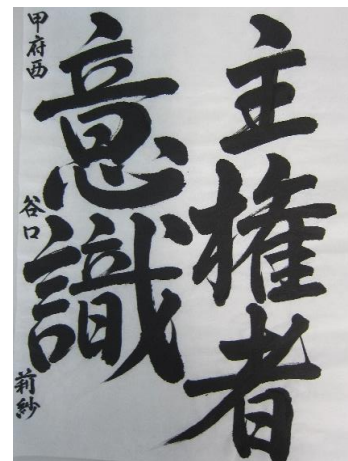 主権者
意識
甲府西 谷口 莉紗